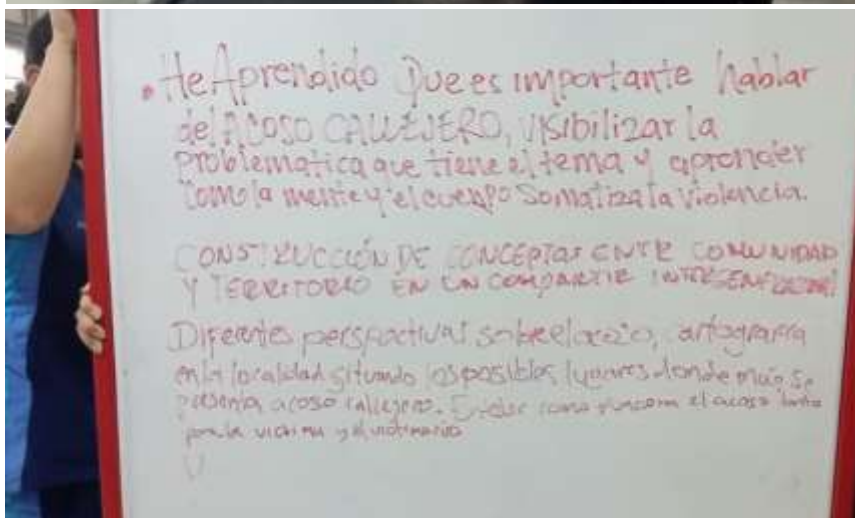 • He Aprendido Que es importante hablar
del ACOSO CALLEJERO, visibilizar la
problematica que tiene el tema y aprender
como la mente y el cuerpo somatiza la violencia.
CONSTRUCCIÓN DE CONCEPTOS ENTRE COMUNIDAD
Y TERRITORIO EN UN COMPARTIR INTERGENERACIONAL
Diferentes perspectivas sobre el acoso, cartografia
en la localidad situando los posibles lugares donde más se
presenta acoso callejero. como funciona el acoso tanto
para la victima y el victimario